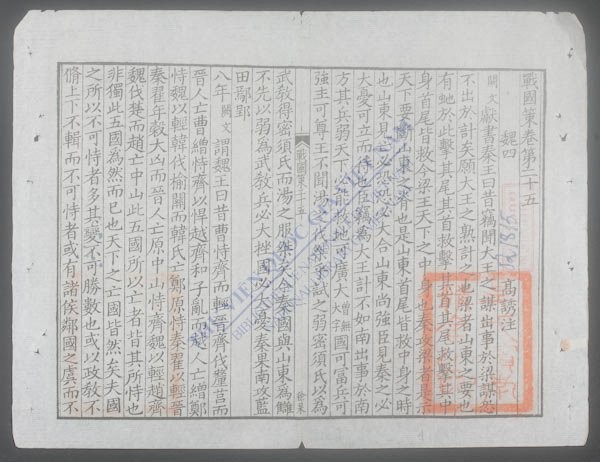 戰國策卷第二十五
魏四 高誘注
闕文獻書秦王曰昔竊聞大王之謀出事於梁謀恐
不出於計矣願大王之熟計之也梁者山東之要也
有虵於此擊其尾其首救擊其首其尾救擊其中
身首尾皆救今梁王天下之中身也秦攻梁者是示
天下要斷山東之脊也是山東首尾皆救中身之時
也山東見亡必恐恐必大合山東尚強臣見秦之必
大憂可立而待也臣竊為大王計不如南出事於南
方其兵弱天下必能救地可廣大曾無大字國可富兵可
強主可尊王不聞湯之伐桀乎試之弱密須氏以為
戰國策二十五
武教得密須氏而湯之服桀矣今秦國與山東為讎
不先以弱為武教兵必大挫國必大憂秦果南攻藍
田鄢郢
八年闕文謂魏王曰昔曹恃齊而輕晉齊伐釐莒而
晉人亡曹繒恃齊以悍越齊和子亂而越人亡繒鄭
恃魏以輕韓伐榆關而韓氏亡鄭原恃秦翟以輕晉
秦翟年穀大凶而晉人亡原中山恃齊魏以輕趙齊
魏伐楚而趙亡中山此五國所以亡者皆其所恃也
非獨此五國為然而已也天下之亡國皆然矣夫國
之所以不可恃者多其變不可勝數也或以政教不
脩上下不輯而不可恃者或有諸侯鄰國之虞而不